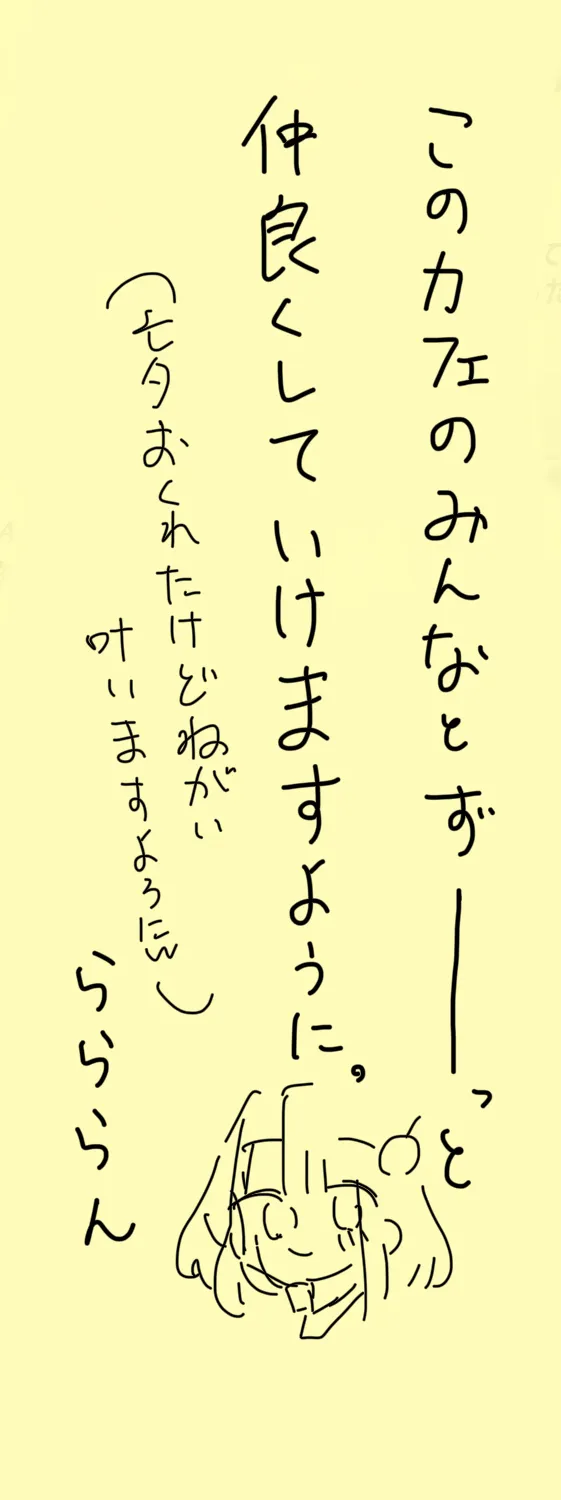 このカフェのみんなとずーーっと
仲良くしていけますように。
(七夕おくれたけどねがい
叶いますよろにw)
らららん